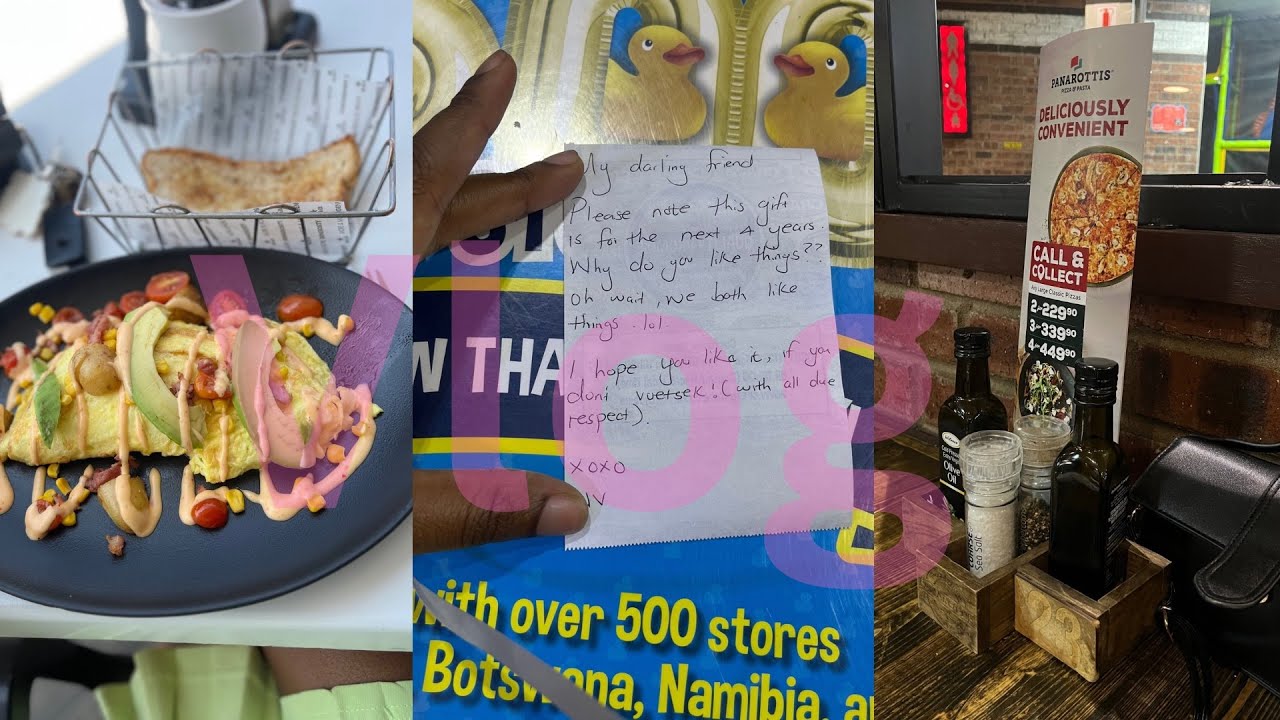 Vlog
My darling friend
Please note this gift
is for the next 4 years.
Why do you like things??
Oh wait, we both like
things .lol.
I hope you like it, if you
dont vuetsek! (with all due
respect).
XOXO
NV
W THA
with over 500 stores
Botswana, Namibia, a
PANAROTTIS
PIZZA & PASTA
DELICIOUSLY
CONVENIENT
CALL &
COLLECT
Any Large Classic Pizzas
2-229 90
3-339 90
4-449 90
Olive
Oil
Sea Salt